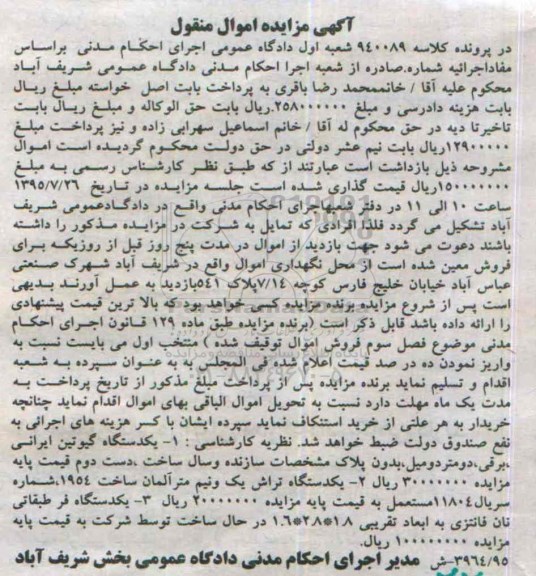 آگهی مزایده اموال منقول
در پرونده کلاسه ۹۴۰۰۸۹ شعبه اول دادگاه عمومی اجرای احکام مدنی براساس
مفاداجرائیه شماره.صادره از شعبه اجرا احکام مدنی دادگاه عمومی شریف آباد
محکوم علیه آقا / خانممحمد رضا باقری به پرداخت بابت اصل خواسته مبلغ ریال
بابت هزینه دادرسی و مبلغ ۲۵۸۰۰۰۰۰۰.ریال بابت حق الوکاله و مبلغ ریال بابت
تاخیرتا دیه در حق محکوم له آقا / خانم اسماعیل سهرابی زاده و نیز پرداخت مبلغ
۱۲۹۰۰۰۰۰ریال بابت نیم عشر دولتی در حق دولت محکوم گردیده است اموال
مشروحه ذیل بازداشت است عبارتند از که طبق نظر کارشناس رسمی به مبلغ
۱۵۰۰۰۰۰۰۰ریال قیمت گذاری شده است جلسه مزایده در تاریخ ۱۳۹۵/۷/۲۶
ساعت ۱۰ الی ۱۱ در دفتر اجرای احکام مدنی واقع در دادگادعمومی شریف
آباد تشکیل می گردد فلذا افرادی که تمایل به شرکت در مزایده مذکور را داشته
باشند دعوت می شود جهت بازدید از اموال در مدت پنج روز قبل از روزیکه برای
فروش معین شده است از محل نگهداری اموال واقع در شریف آباد شهرک صنعتی
عباس آباد خیابان خلیج فارس کوچه ۷/۱۴پلاک ۵۴۱بازدید به عمل آورند بدیهی
است پس از شروع مزایده برنده مزایده کسی خواهد بود که بالا ترین قیمت پیشنهادی
را ارائه داده باشد قابل ذکر است (برنده مزایده طبق ماده ۱۲۹ قانون اجرای احکام
مدنی موضوع فصل سوم فروش اموال توقیف شده ) منتخب اول می بایست نسبت به
واریز نمودن ده در صد قیمت اعلام شده فی المجلس به به عنوان سپرده به شعبه
اقدام و تسلیم نماید برنده مزایده پس از پرداخت مبلغ مذکور از تاریخ پرداخت به
مدت یک ماه مهلت دارد نسبت به تحویل اموال الباقی بهای اموال اقدام نماید چنانچه
خریدار به هر علتی از خرید استنکاف نماید سپرده ایشان با کسر هزینه های اجرائی به
نفع صندوق دولت ضبط خواهد شد. نظریه کارشناسی : ۱- یکدستگاه گیوتین ایرانی
،برقی،دومتردومیل،بدون پلاک مشخصات سازنده وسال ساخت ،دست دوم قیمت پایه
مزایده ۳۰۰۰۰۰۰۰ ریال ۲- یکدستگاه تراش یک ونیم مترآلمان ساخت ۱۹۵۴،شماره
سریال۱۱۸۰۴مستعمل به قیمت پایه مزایده ۲۰۰۰۰۰۰۰ ریال ۳- یکدستگاه فر طبقاتی
نان فانتزی به ابعاد تقریبی ۱.۸*۲.۸*۱.۶ در حال ساخت توسط شرکت به قیمت پایه
مزایده ۱۰۰۰۰۰۰۰۰ ریال.
۳۹۶۴/۹۵-ش مدیر اجرای احکام مدنی دادگاه عمومی بخش شریف آباد